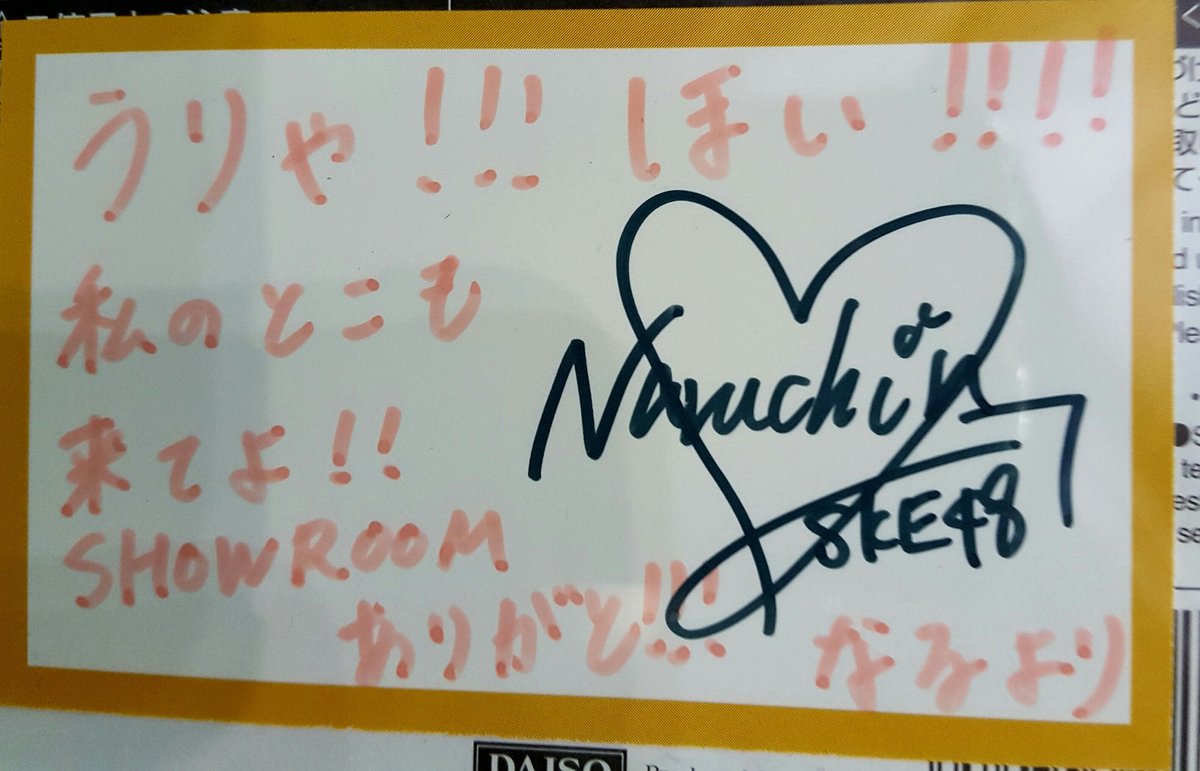 うりゃ!!! しほい!!!!
私のとこも
来てよ!!
SHOWROOM
ありがと!!!
なるより
Naruchin
SKE48
DAISO